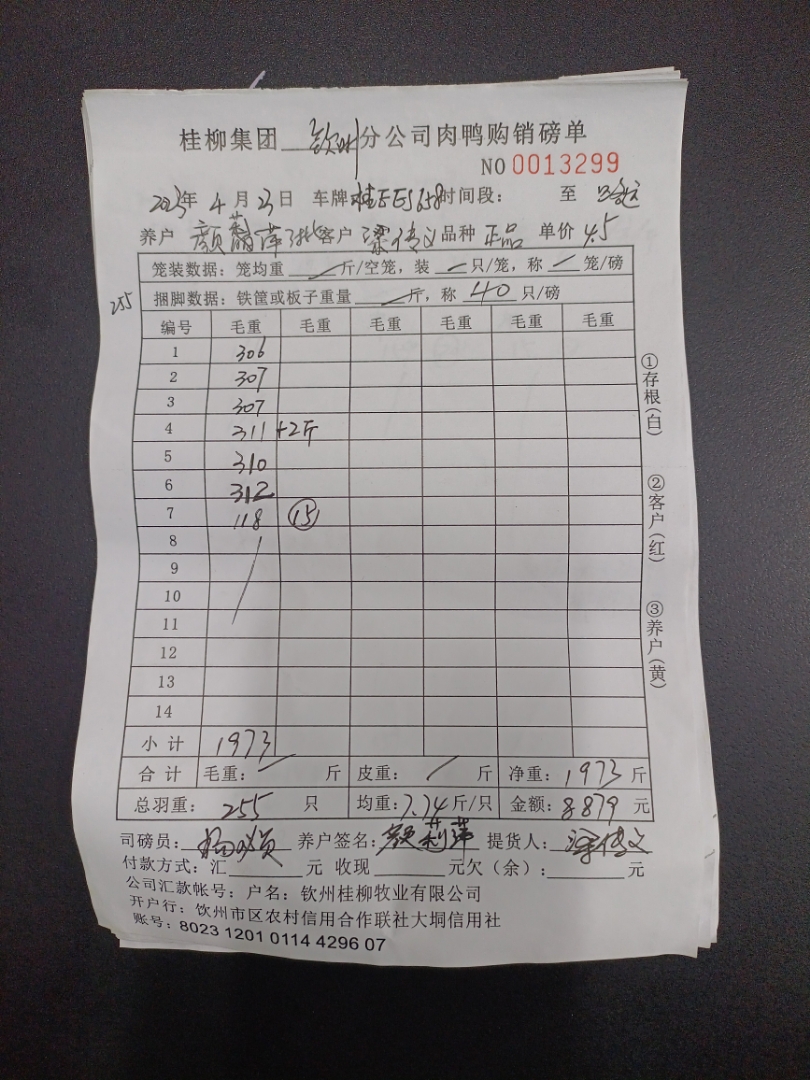 桂柳集团 钦州 分公司肉鸭购销磅单
NO 0013299
2023年 4 月 23 日 车牌 桂 时间段： 至
养户 颜 萍 客户 梁传义 品种 正品 单价 4.5
笼装数据：笼均重 / 斤/空笼，装 / 只/笼，称 / 笼/磅
255
捆脚数据：铁筐或板子重量 / 斤，称 40 只/磅
编号 毛重 毛重 毛重 毛重 毛重 毛重
1 306
2 307
3 307
4 311 +2斤
5 310
6 312
7 118 ⑮
8
9
10
11
12
13
14
小计 1973
合计 毛重： / 斤 皮重： / 斤 净重：1973 斤
总羽重： 255 只 均重：7.74 斤/只 金额：8879 元
司磅员： 杨 养户签名： 颜莉萍 提货人： 梁传义
付款方式：汇 元 收现 元欠（余）： 元
公司汇款帐号：户名：钦州桂柳牧业有限公司
开户行：钦州市区农村信用合作联社大垌信用社
账号：8023 1201 0114 4296 07
①存根（白）
②客户（红）
③养户（黄）